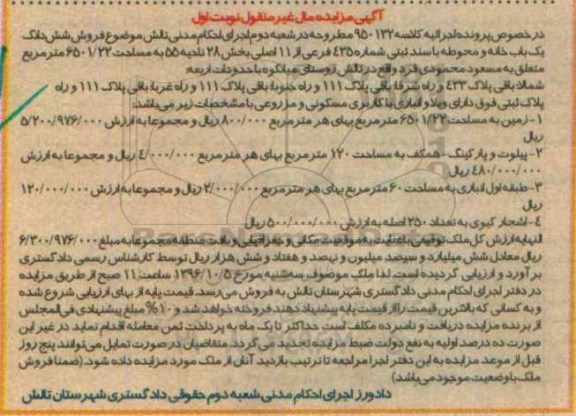 آگهی مزایده مال غیر منقول نوبت اول
در خصوص پرونده اجرائیه کلاسه 950132 مطروحه در شعبه دوم اجرای احکام مدنی تالش موضوع فروش شش دانگ
یک باب خانه و محوطه با سند ثبتی شماره 425 فرعی از 11 اصلی بخش 28 ناحیه 55 به مساحت 6501/22 متر مربع
متعلق به مسعود محمودی فرد واقع در تالش روستای میانکوه با حدودات اربعه:
شمالا باقی پلاک 433 و راه شرقا باقی پلاک 111 و راه جنوبا باقی پلاک 111 و راه غربا باقی پلاک 111 و راه
پلاک ثبتی فوق دارای ویلا و انباری با کاربری مسکونی و مزروعی با مشخصات زیر می باشد:
1- زمین به مساحت 6501/22 متر مربع بهای هر متر مربع 800/000 ریال و مجموعا به ارزش 5/200/976/000
ریال
2- پیلوت و پارکینگ - همکف به مساحت 120 متر مربع بهای هر متر مربع 4/000/000 ریال و مجموعا به ارزش
480/000/000 ریال
3- طبقه اول انباری به مساحت 60 متر مربع بهای هر متر مربع 2/000/000 ریال و مجموعا به ارزش 120/000/000
ریال
4- اشجار کیوی به تعداد 250 اصله به ارزش 500/000/000 ریال
النهایه ارزش کل ملک توقیفی با عنایت به موقعیت مکانی و جغرافیایی و بافت منطقه مجموعا به مبلغ 6/300/976/000
ریال معادل شش میلیارد و سیصد میلیون و نهصد و هفتاد و شش هزار ریال توسط کارشناس رسمی دادگستری
برآورد و ارزیابی گردیده است. لذا ملک موصوف سه شنبه مورخ 1396/10/5 ساعت 11 صبح از طریق مزایده
در دفتر اجرای احکام مدنی دادگستری شهرستان تالش به فروش می رسد. قیمت پایه از بهای ارزیابی شروع شده
و به کسانی که بالاترین قیمت را از قیمت پایه پیشنهاد دهند فروخته خواهد شد و 10% مبلغ پیشنهادی فی المجلس
از برنده مزایده دریافت و نامبرده مکلف است حداکثر تا یک ماه به پرداخت ثمن معامله اقدام نماید در غیر این
صورت ده درصد اولیه به نفع دولت ضبط مزایده تجدید می گردد. متقاضیان در صورت تمایل می توانند پنج روز
قبل از موعد مزایده به این دفتر اجرا مراجعه تا ترتیب بازدید آنان از ملک مورد مزایده داده شود. (ضمنا فروش
ملک با وضعیت موجود می باشد)
دادورز اجرای احکام مدنی شعبه دوم حقوقی دادگستری شهرستان تالش